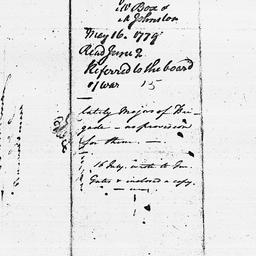 W Box &
Johnston
May 16. 1779
Read June 2
Referred to the board
of war 15
lately Majors of Bri-
gade — no provision
for them. —
16 July. wrote to Gen.
Gates & inclosed a copy.